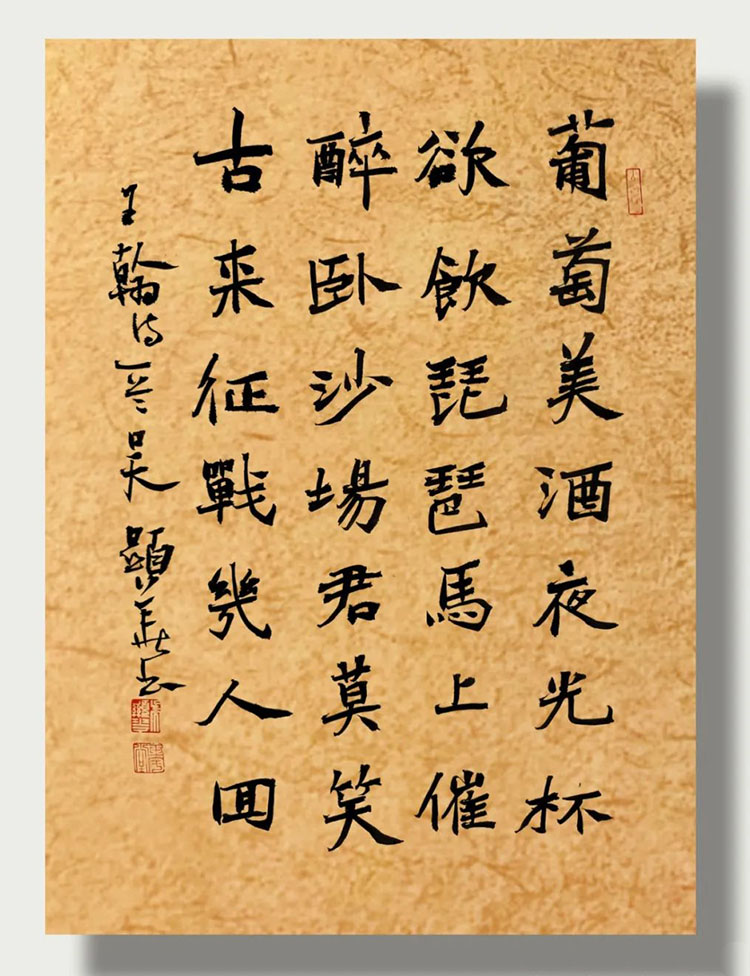 葡萄美酒夜光杯
欲飲琵琶馬上催
醉卧沙場君莫笑
古来征戰幾人回
王翰诗
吴顯